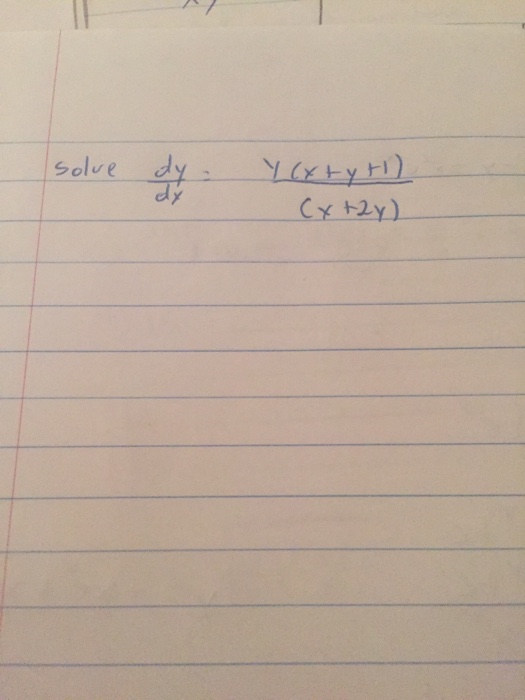 solve dy/dx = y(x+y+1)/(x+2y)